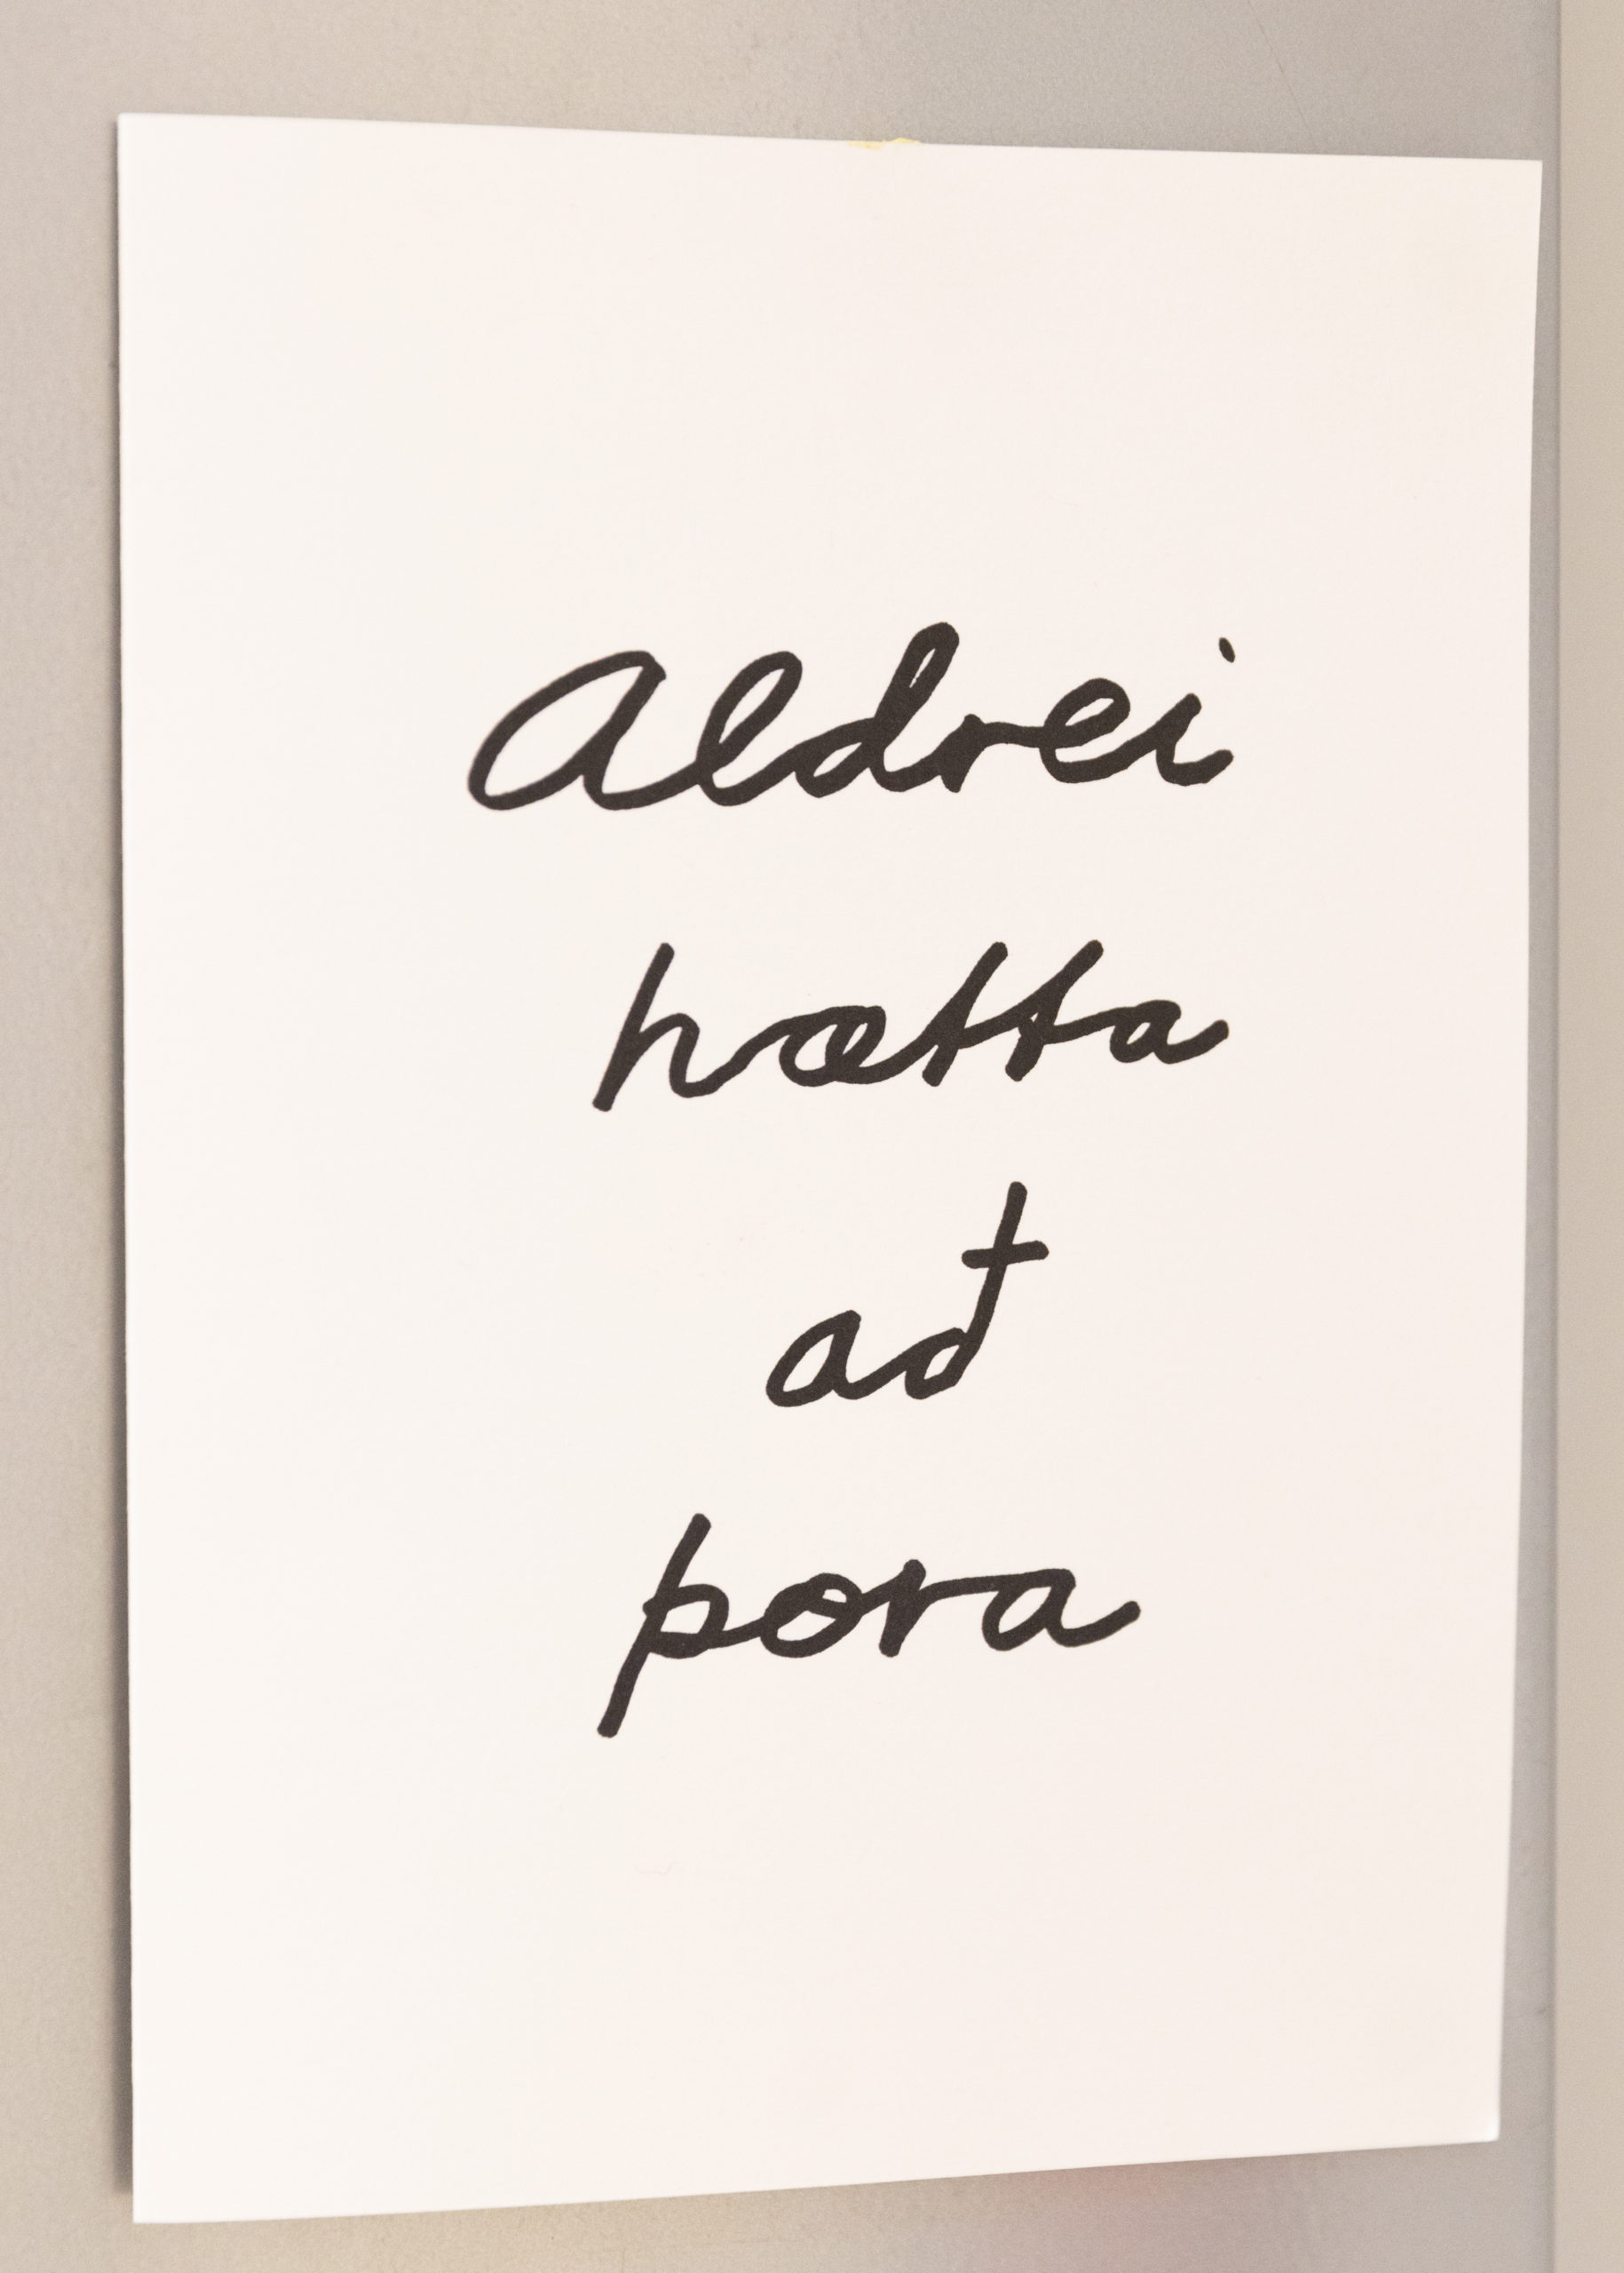 Aldrei
hætta
að
þora